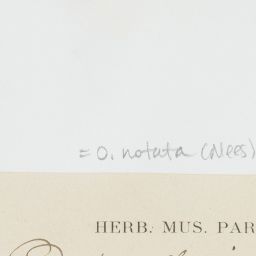 = O. notata (Nees)
HERB. MUS. PAR